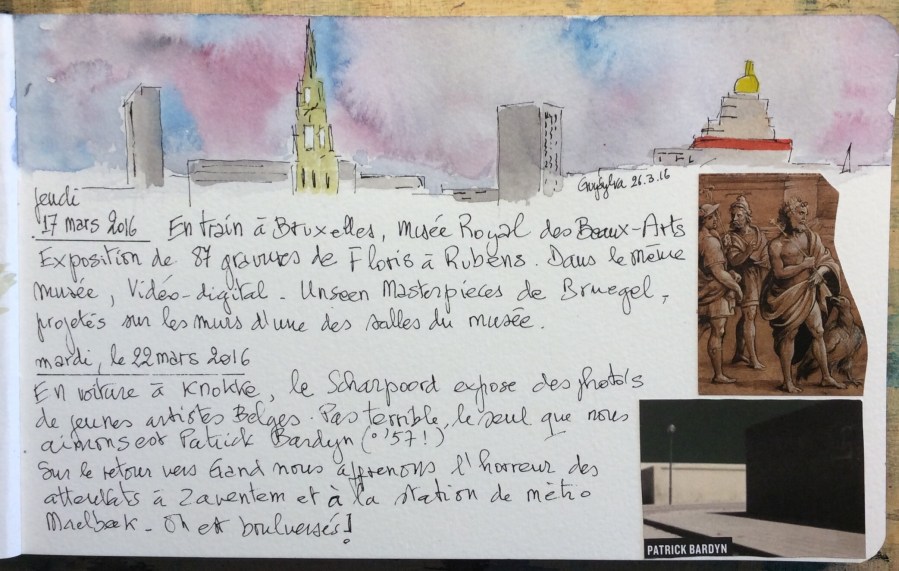 GuySylva 26.3.16
jeudi
17 mars 2016 En train à Bruxelles, Musée Royal des Beaux-Arts
Exposition de 87 gravures de Floris à Rubens. Dans le même
musée, Vidéo-digital - Unseen Masterpieces de Bruegel,
projetés sur les murs d'une des salles du musée.
mardi, le 22 mars 2016
En voiture à Knokke, le Scharpoord expose des photos
de jeunes artistes Belges. Pas terrible, le seul que nous
aimons est Patrick Bardyn (°'57!)
Sur le retour vers Gand nous apprenons l'horreur des
attentats à Zaventem et à la station de métro
Maelbeek - On est boulversés!
PATRICK BARDYN